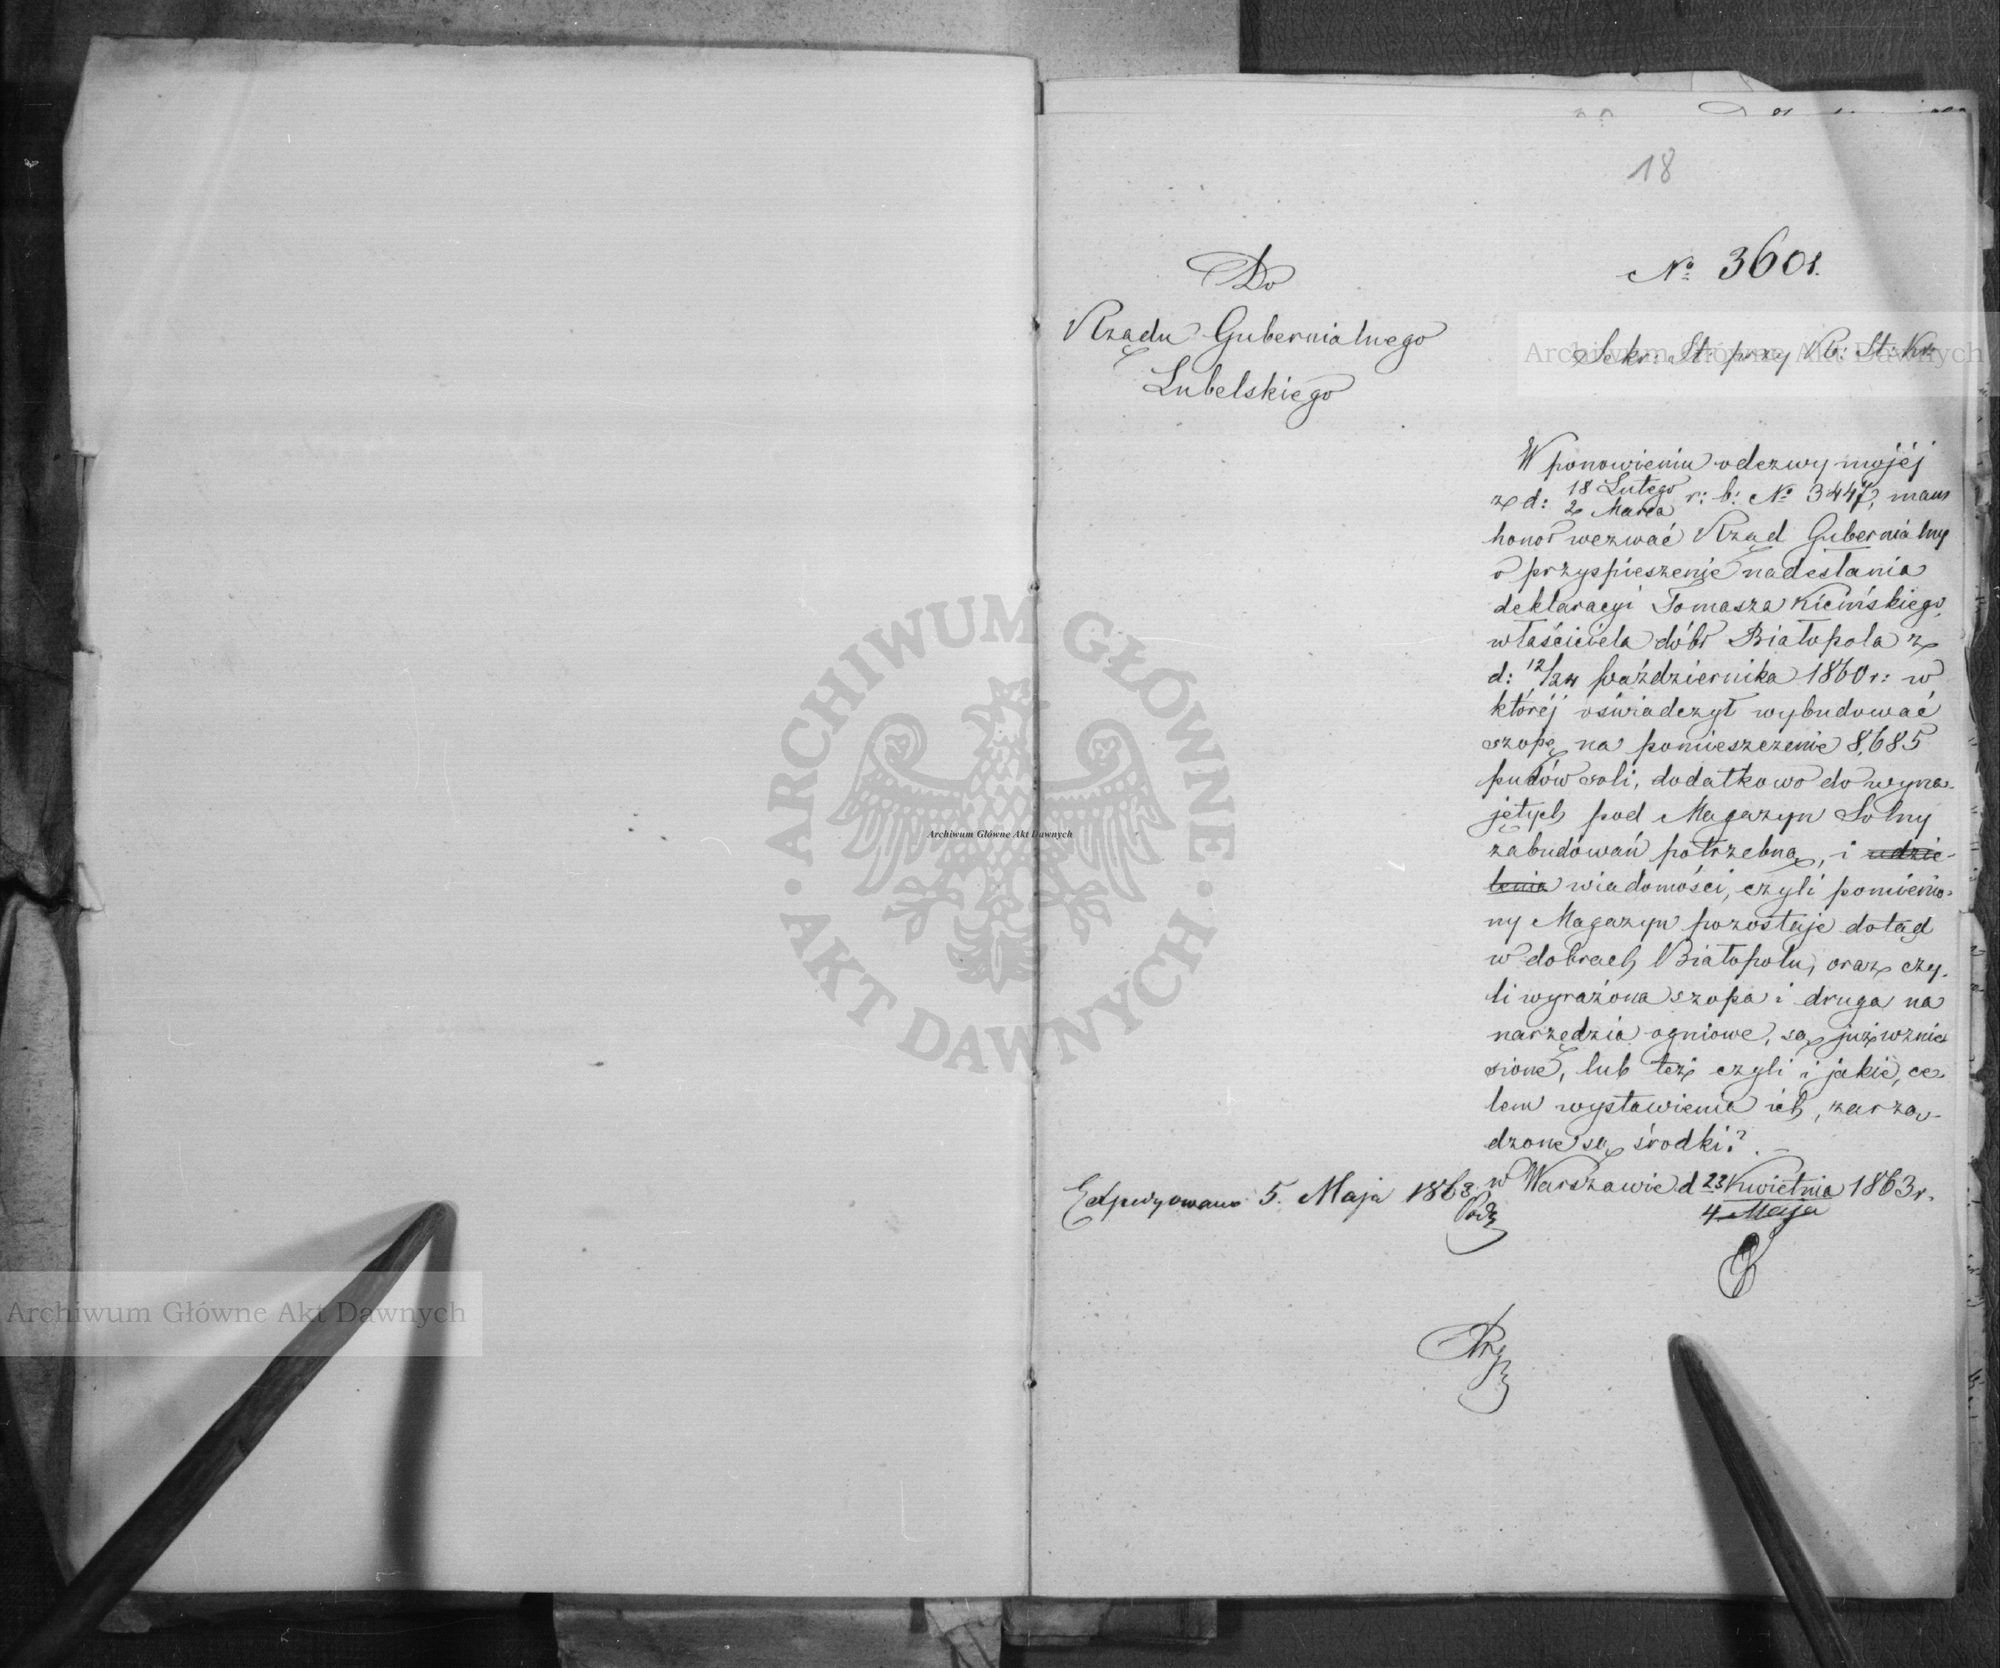 18
Do
Rządu Gubernialnego
Lubelskiego
№ 3601.
Sekr: St: przy Rb: St: Kr:
W ponowieniu odezwy mojéj
z d: 18 Lutego / 2 Marca r: b: № 3447, mam
honor wezwać Rząd Gubernialny
o przyspieszenie nadesłania
deklaracyi Tomasza Kicińskiego,
właściciela dóbr Białopola z
d: 12/24 Października 1860 r: w
któréj oświadczył wybudować
szopę na pomieszczenie 8,685
pudów soli, dodatkowo do wyna-
jętych pod Magazyn Solny
zabudowań potrzebną, i udzie-
lenia wiadomości, czyli pomienio-
ny Magazyn pozostaje dotąd
w dobrach Białopolu, oraz czy-
li wyrażona szopa i druga na
narzędzia ogniowe, są już wznie-
sione, lub też czyli i jakie, ce-
lem wystawienia ich, zarzą-
dzone są środki?
w Warszawie d 23 Kwietnia / 4 Maja 1863 r.
Expedyowano 5. Maja 1863.
ARCHIWUM GŁÓWNE
AKT DAWNYCH
Archiwum Główne Akt Dawnych
Archiwum Główne Akt Dawnych
Archiwum Główne Akt Dawnych